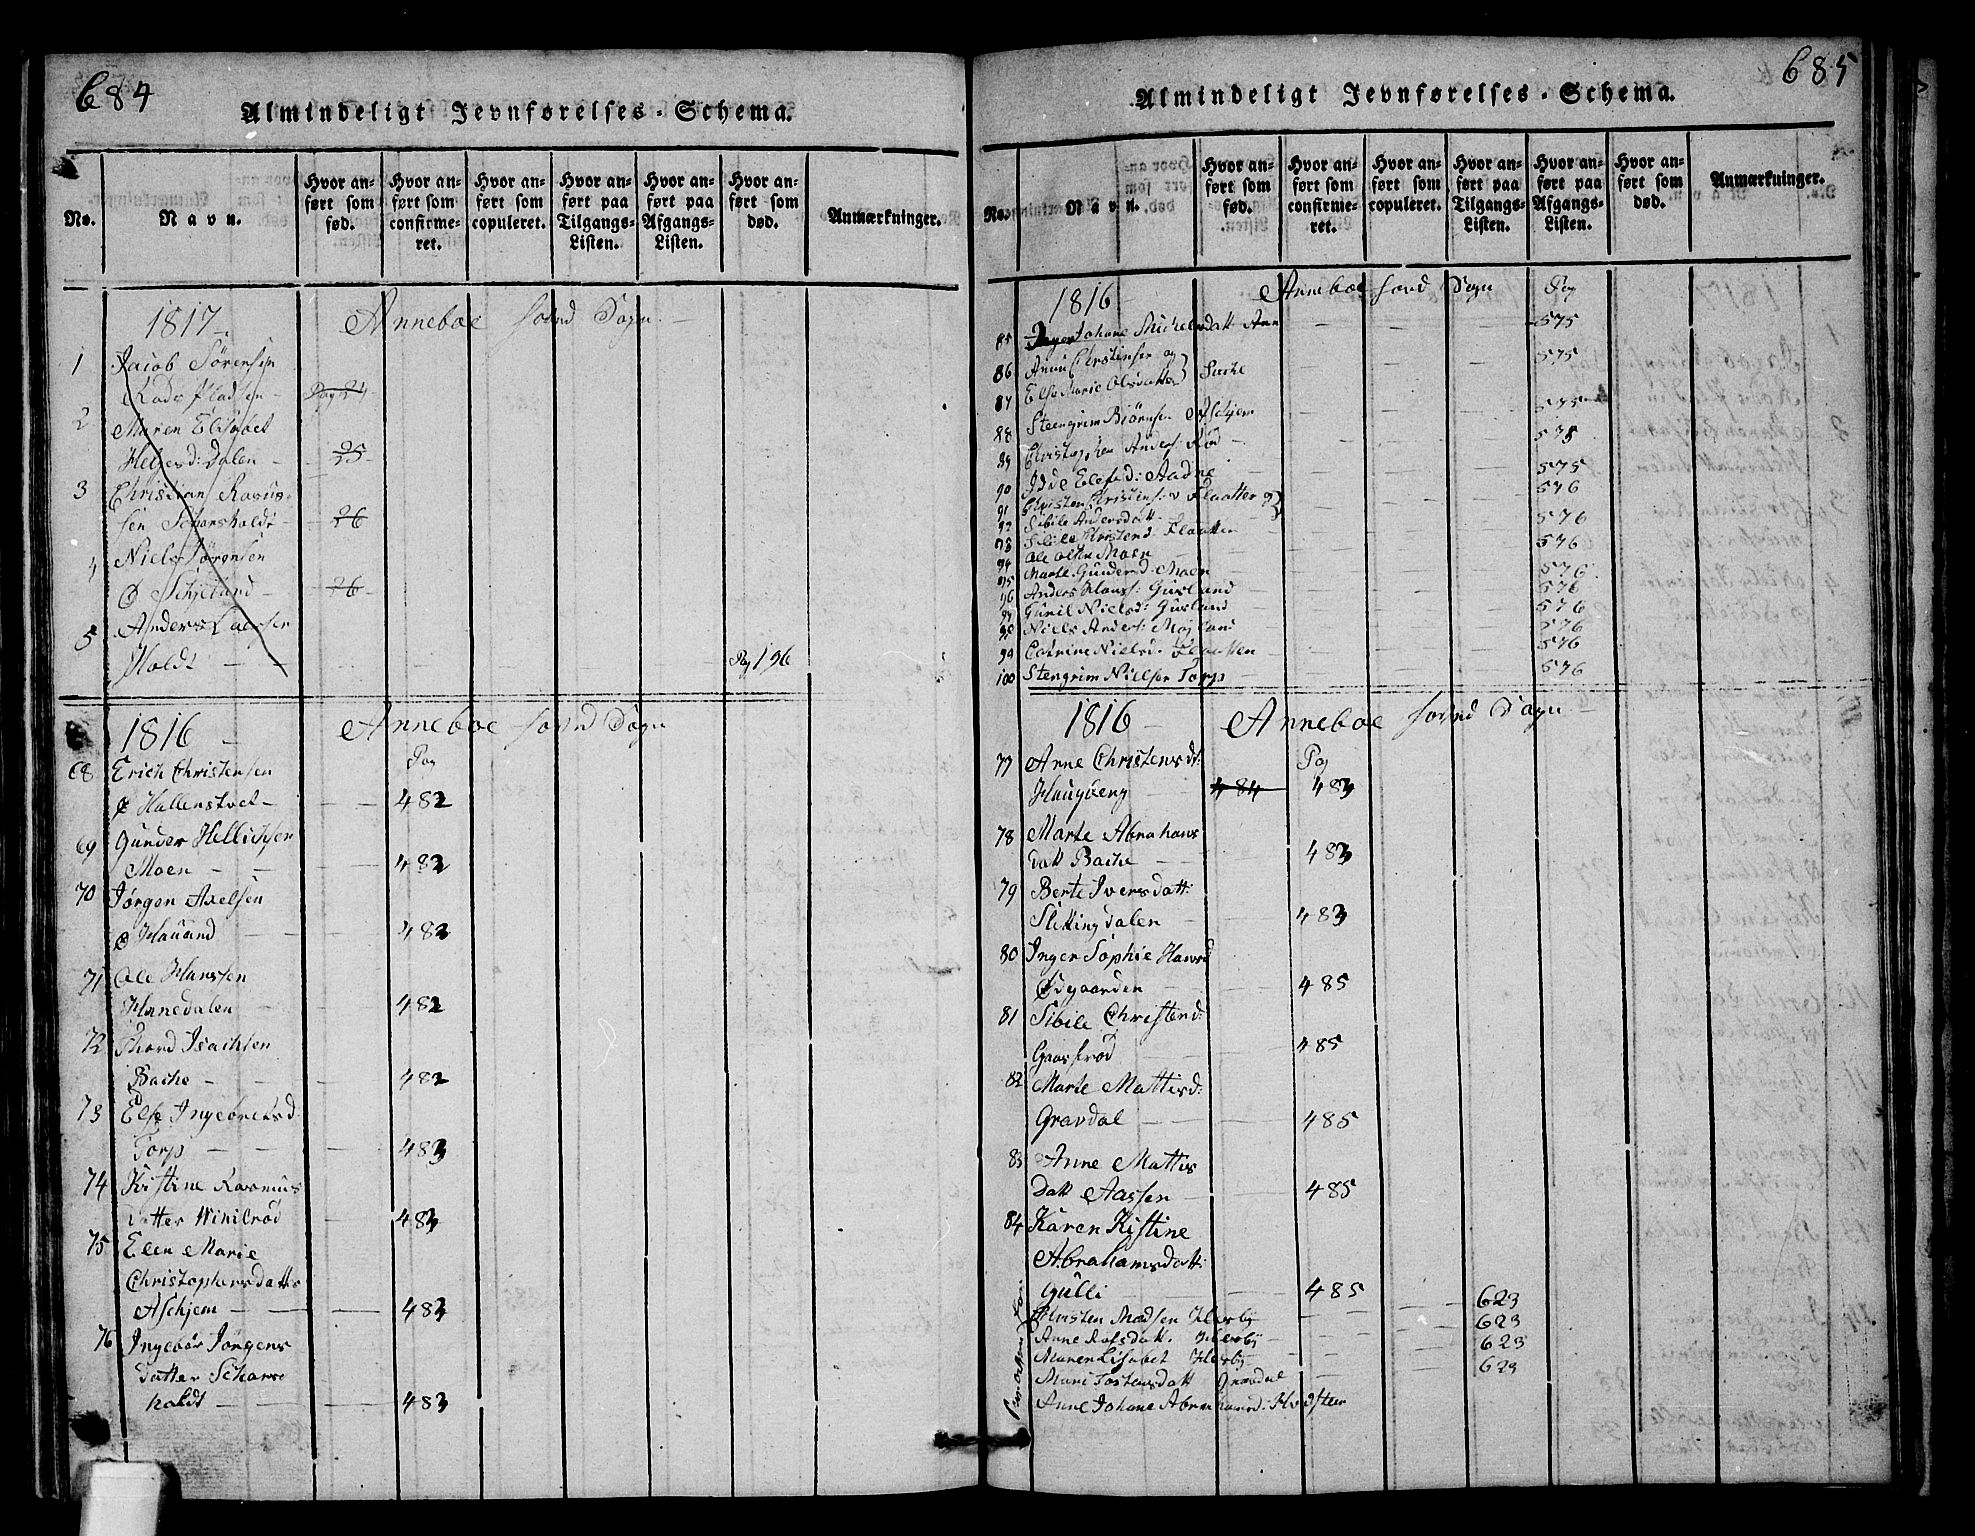 684
Almindeligt Jevnførelses-Schema.
No.
Navn.
Hvor anført som fød.
Hvor anført som confirmeret.
Hvor anført som copuleret.
Hvor anført paa Tilgangs-Listen.
Hvor anført paa Afgangs-Listen.
Hvor anført som død.
Anmærkninger.
1817 Anneboe Sogn
1 Jacob Sörensen
Pag 24
2 Maren Elisabet
Helgesd: Dalen 25
3 Christian Rasmus-
sen Schorsholdt 26
4 Niels Sörensen
26
5 Anders Larsen
Holdt Pag 196
1816 Anneboe Sogn
Pag
68 Erich Christensen
Hallenstvet 482
69 Gunder Hellichsen
Moen 482
70 Jörgen Axelsen
482
71 Ole Hanssen
Hanedalen 482
72 Thord Isachsen
Bache 482
73 Else Ingebretsd:
Torp 483
74 Kistine Rasmus
datter Winilröd 483
75 Elen Marie
Christophersdatter
Aschjem 483
76 Ingebör Jörgens
datter Schors
holdt 483
685
Almindeligt Jevnførelses-Schema.
No.
Navn.
Hvor anført som fød.
Hvor anført som confirmeret.
Hvor anført som copuleret.
Hvor anført paa Tilgangs-Listen.
Hvor anført paa Afgangs-Listen.
Hvor anført som død.
Anmærkninger.
1816 Anneboe Sogn Pag
85 Johane Michelsdatt: 575
86 Anne Christensen og 575
87 Else Marie Olsdatter Bache
88 Steengrim Björnsen Aschjem 575
89 Christopher Anders: Röd 575
90 Elefsd: Aadne 575
91 Christen Christens: Flaatten og 576
92 Sibile Andersdatt: 576
93 Sibile Christend: Flaatten 576
94 Ole Olsen Moen
95 Marte Gunders d: Moen 576
96 Anders Hans: Gusland 576
97 Gunil Nielsd: Gusland 576
98 Niels Anders: Mojland 576
99 Catrine Nielsd: Flaatten 576
100 Stengrim Nielsen Torp 576
1816 Anneboe Sogn
Pag
77 Anne Christensdt:
Haugberg 484 483
78 Marte Abrahams
datt Bache 483
79 Berte Iversdatt:
Slettingdalen 483
80 Inger Sophie Hansd
Ödgaarden 485
81 Sibile Christend:
Gaasseröd 485
82 Marte Mattisd:
Gravdal 485
83 Anne Mattis
datt Aassen 485
84 Karen Kistine
Abrahamsdatt:
Gulli 485
Christen Madsen Ilersby 623
Anne Rolfsdatt. Ilersby 623
Maren Lisabet Ilersby 623
Mari Tostensdatt Gravdal 623
Anne Johane Abrahamsd: Hvidsteen